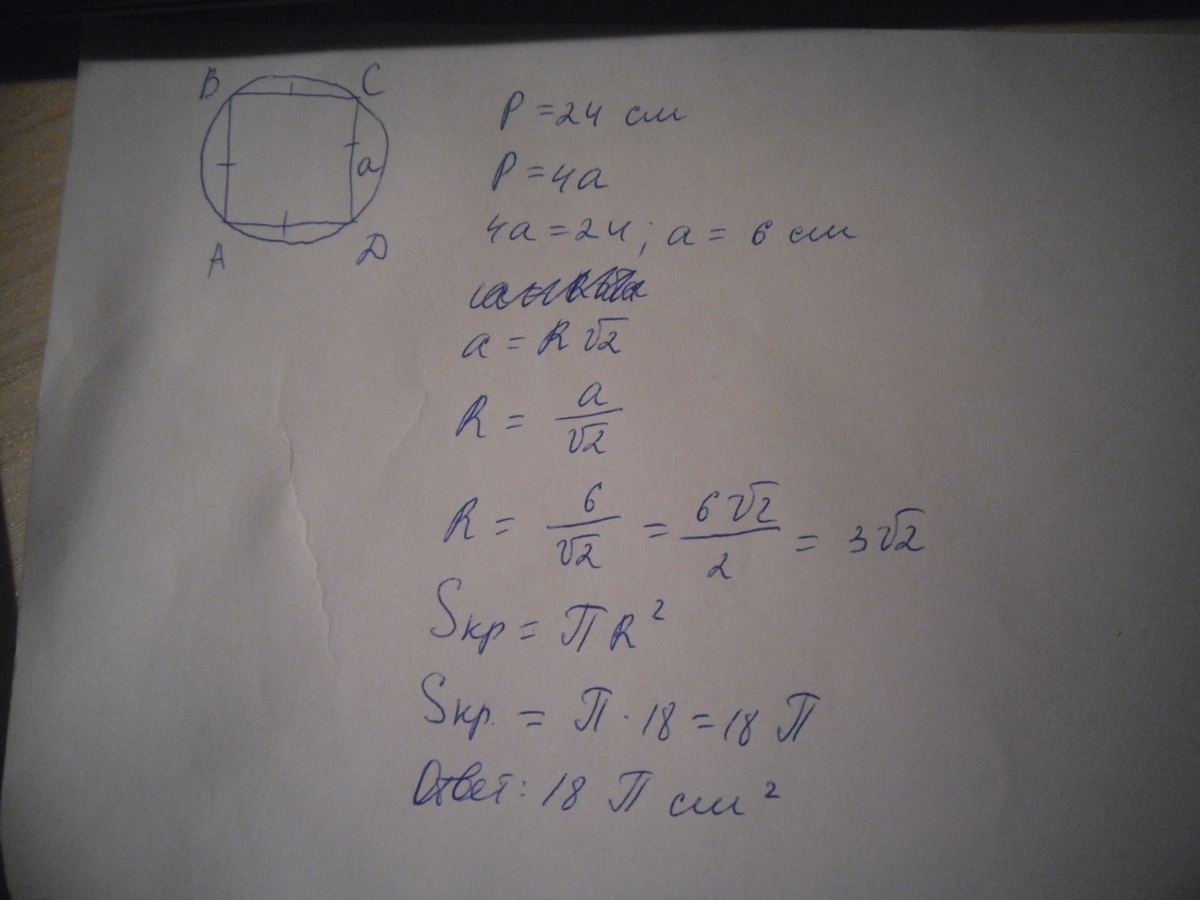 B C
a
A D
P = 24 см
P = 4a
4a = 24; a = 6 см
a = R √2
R = a/√2
R = 6/√2 = 6√2/2 = 3√2
Sкр = π R²
Sкр. = π · 18 = 18 π
Ответ: 18 π см²